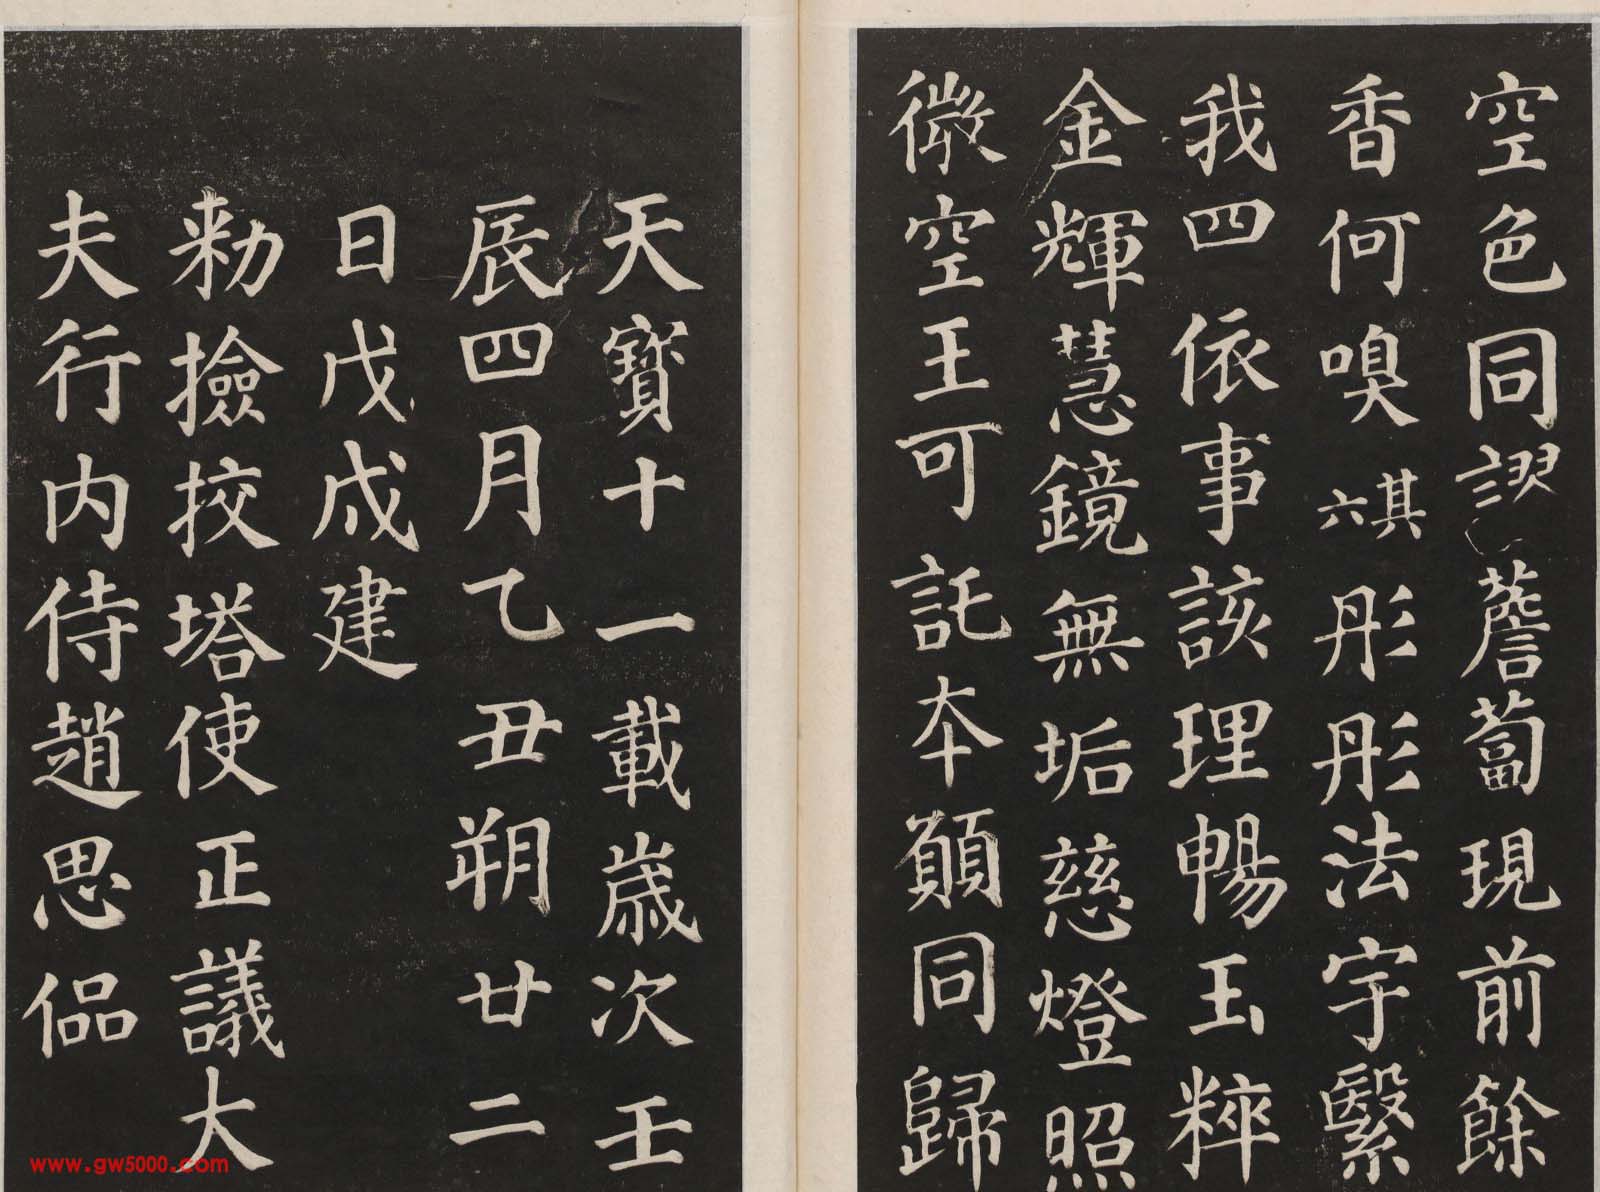 空色同謬薝蔔現前餘
香何嗅其六彤彤法宇繄
我四依事該理暢玉粹
金輝慧鏡無垢慈燈照
微空王可託本願同歸
天寶十一載歲次壬
辰四月乙丑朔廿二
日戊戌建
勑撿挍塔使正議大
夫行内侍趙思侃
www.gw5000.com